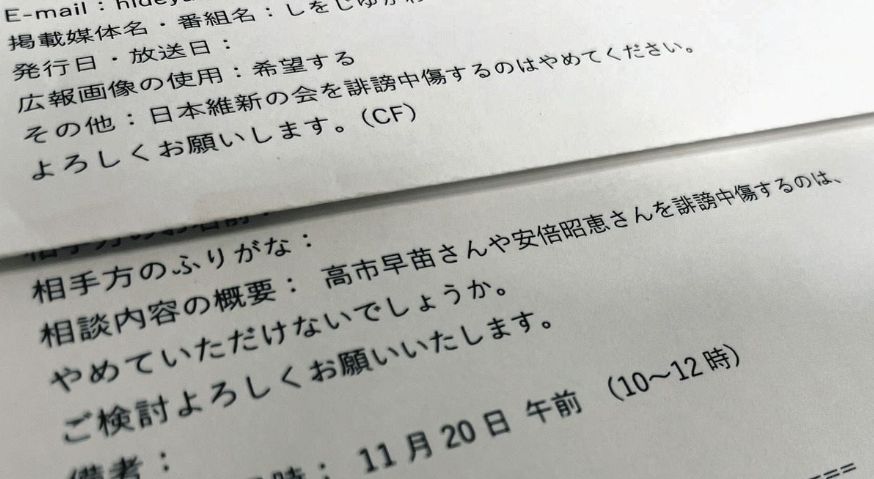 E-mail：hideya
掲載媒体名・番組名：しをじゅかわ
発行日・放送日：
広報画像の使用：希望する
その他：日本維新の会を誹謗中傷するのはやめてください。
よろしくお願いします。(CF)
相手方のお名前：
相手方のふりがな：
相談内容の概要： 高市早苗さんや安倍昭恵さんを誹謗中傷するのは、
やめていただけないでしょうか。
ご検討よろしくお願いいたします。
備考：
時： 11月20日 午前 （10～12時）
===